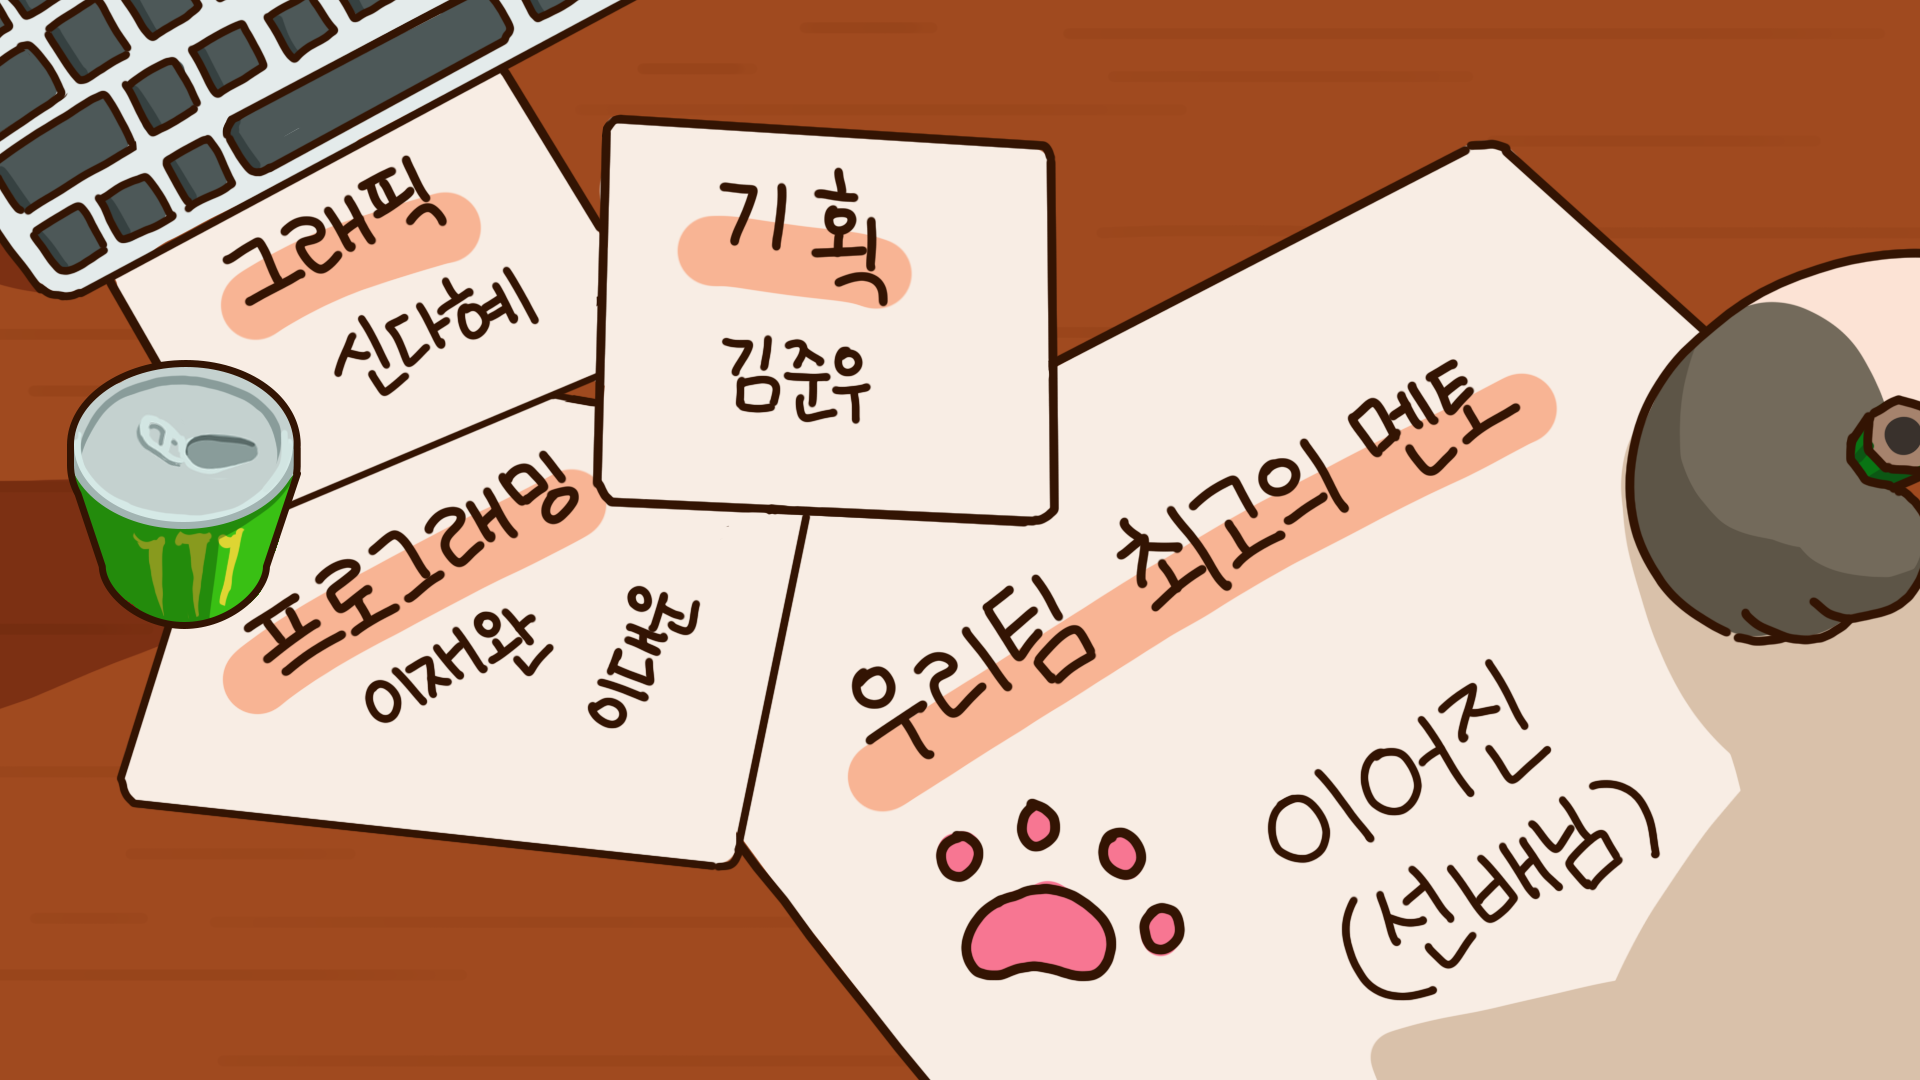 그래픽
신다혜
기획
김준우
프로그래밍
이재완
이대운
우리팀 최고의 멘토
이어진
(선배님)